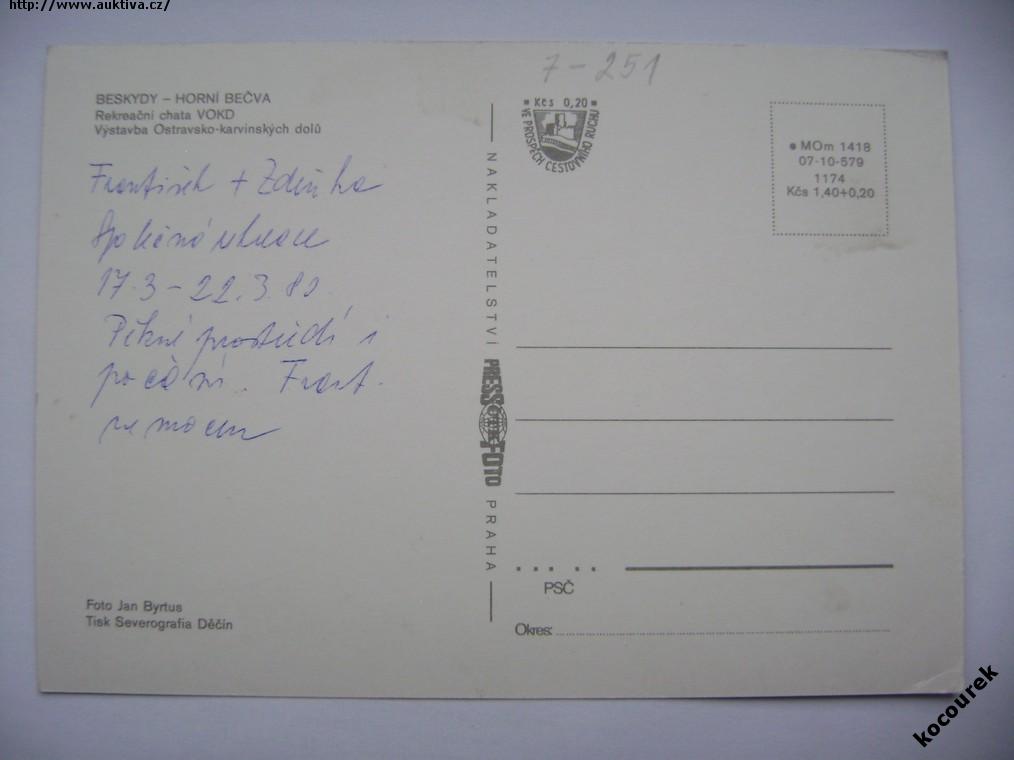 http://www.auktiva.cz/
7-251
BESKYDY – HORNÍ BEČVA
Rekreační chata VOKD
Výstavba Ostravsko-karvinských dolů
František + Zdeňka
17.3 – 22.3.80
Pěkné prostředí i
počasí. Frant.
nemocen
Foto Jan Byrtus
Tisk Severografia Děčín
NAKLADATELSTVÍ PRESSFOTO PRAHA
Kčs 0,20
VE PROSPĚCH CESTOVNÍHO RUCHU
MOm 1418
07-10-579
1174
Kčs 1,40+0,20
PSČ
Okres:
kocourek